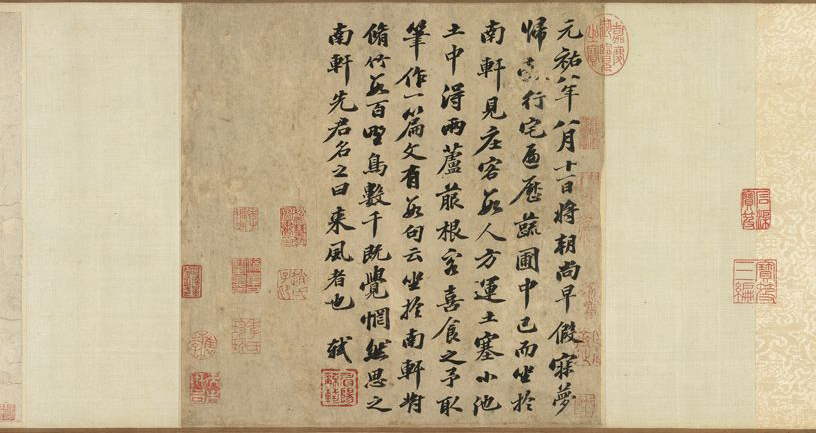 元祐八年八月十一日將朝尚早假寐夢
歸行宅遍歷蔬圃中已而坐於
南軒見庄客數人方運土塞小池
土中得兩蘆菔根客喜食之予取
筆作一篇文有數句云坐於南軒對
脩竹數百野鳥數千既覺惘然思之
南軒先君名之曰來風者也 軾
嘉慶御覽之寶
石渠寶笈
寶笈三編